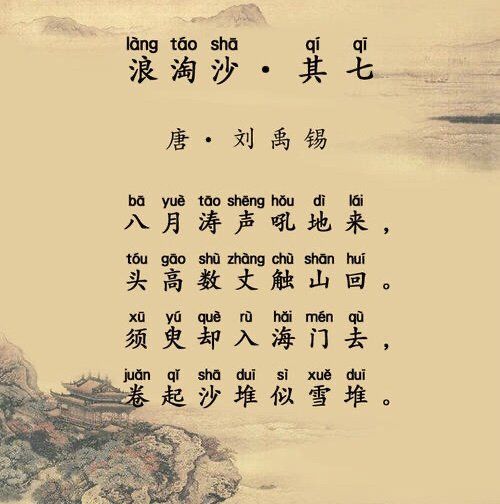 làng táo shā qí qī
浪淘沙·其七
唐·刘禹锡
bā yuè tāo shēng hǒu dì lái
八月涛声吼地来，
tóu gāo shù zhàng chù shān huí
头高数丈触山回。
xū yú què rù hǎi mén qù
须臾却入海门去，
juǎn qǐ shā duī sì xuě duī
卷起沙堆似雪堆。